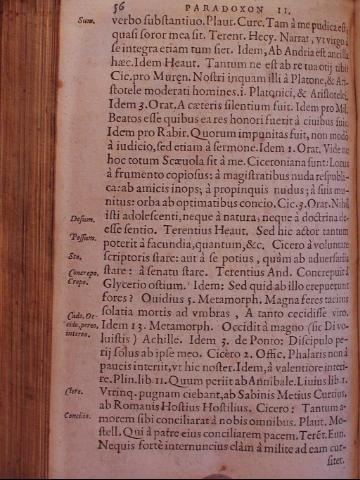 56 PARADOXON II.
Sum. verbo substantiuo. Plaut. Curc. Tam à me pudica est,
quasi soror mea sit. Terent. Hecy. Narrat, vt virgo à
se integra etiam tum siet. Idem, Ab Andria est ancilla
hæc. Idem Heaut. Tantum ne est ab re tua otij tibi?
Cic. pro Muren. Nostri inquam illi à Platone, & Ari-
stotele moderati homines. i. Platonici, & Aristotelei
Idem 3. Orat. A cæteris silentium fuit. Idem pro Mil.
Beatos esse quibus ea res honori fuerit à ciuibus suis.
Idem pro Rabir. Quorum impunitas fuit, non modò
à iudicio, sed etiam à sermone. Idem 1. Orat. Vide ne
hoc totum Scæuola sit à me. Ciceroniana sunt: Locus
à frumento copiosus: à magistratibus nuda respubli-
ca: ab amicis inops; à propinquis nudus; à suis mu-
nitus: orba ab optimatibus concio. Cic. 3. Orat. Nihil
Desum. isti adolescenti, neque à natura, neque à doctrina de-
esse sentio. Terentius Heaut. Sed hic actor tantum
Possum. poterit à facundia, quantum, &c. Cicero à voluntate
Sto. scriptoris stare: aut à se potius, quàm ab aduersariis
Concrepo. stare: à senatu stare. Terentius And. Concrepuit à
Crepo. Glycerio ostium. Idem: Sed quid ab illo crepuerunt
fores? Quidius 5. Metamorph. Magna feres tacitus
solatia mortis ad vmbras, A tanto cecidisse viro.
Cado. Oc-
cido. pereo. Idem 13. Metamorph. Occidit à magno (sic Di vo-
intereo. luistis) Achille. Idem 3. de Ponto: Discipulo pe-
rij solus ab ipse meo. Cicero 2. Offic. Phalaris non à
paucis interiit, vt hic noster. Idem, à valentiore interi-
re. Plin. lib. 11. Quum periit ab Annibale. Liuius lib. 1.
Clere. Vtrinq. pugnam ciebant, ab Sabinis Metius Curtius,
ab Romanis Hostius Hostilius. Cicero: Tantum a-
Concilio. morem sibi conciliarat à nobis omnibus. Plaut. Mo-
stell. Qui à patre eius conciliarem pacem. Terēt. Eun.
Nequis fortè internuncius clàm à milite ad eam cur-
sitet.